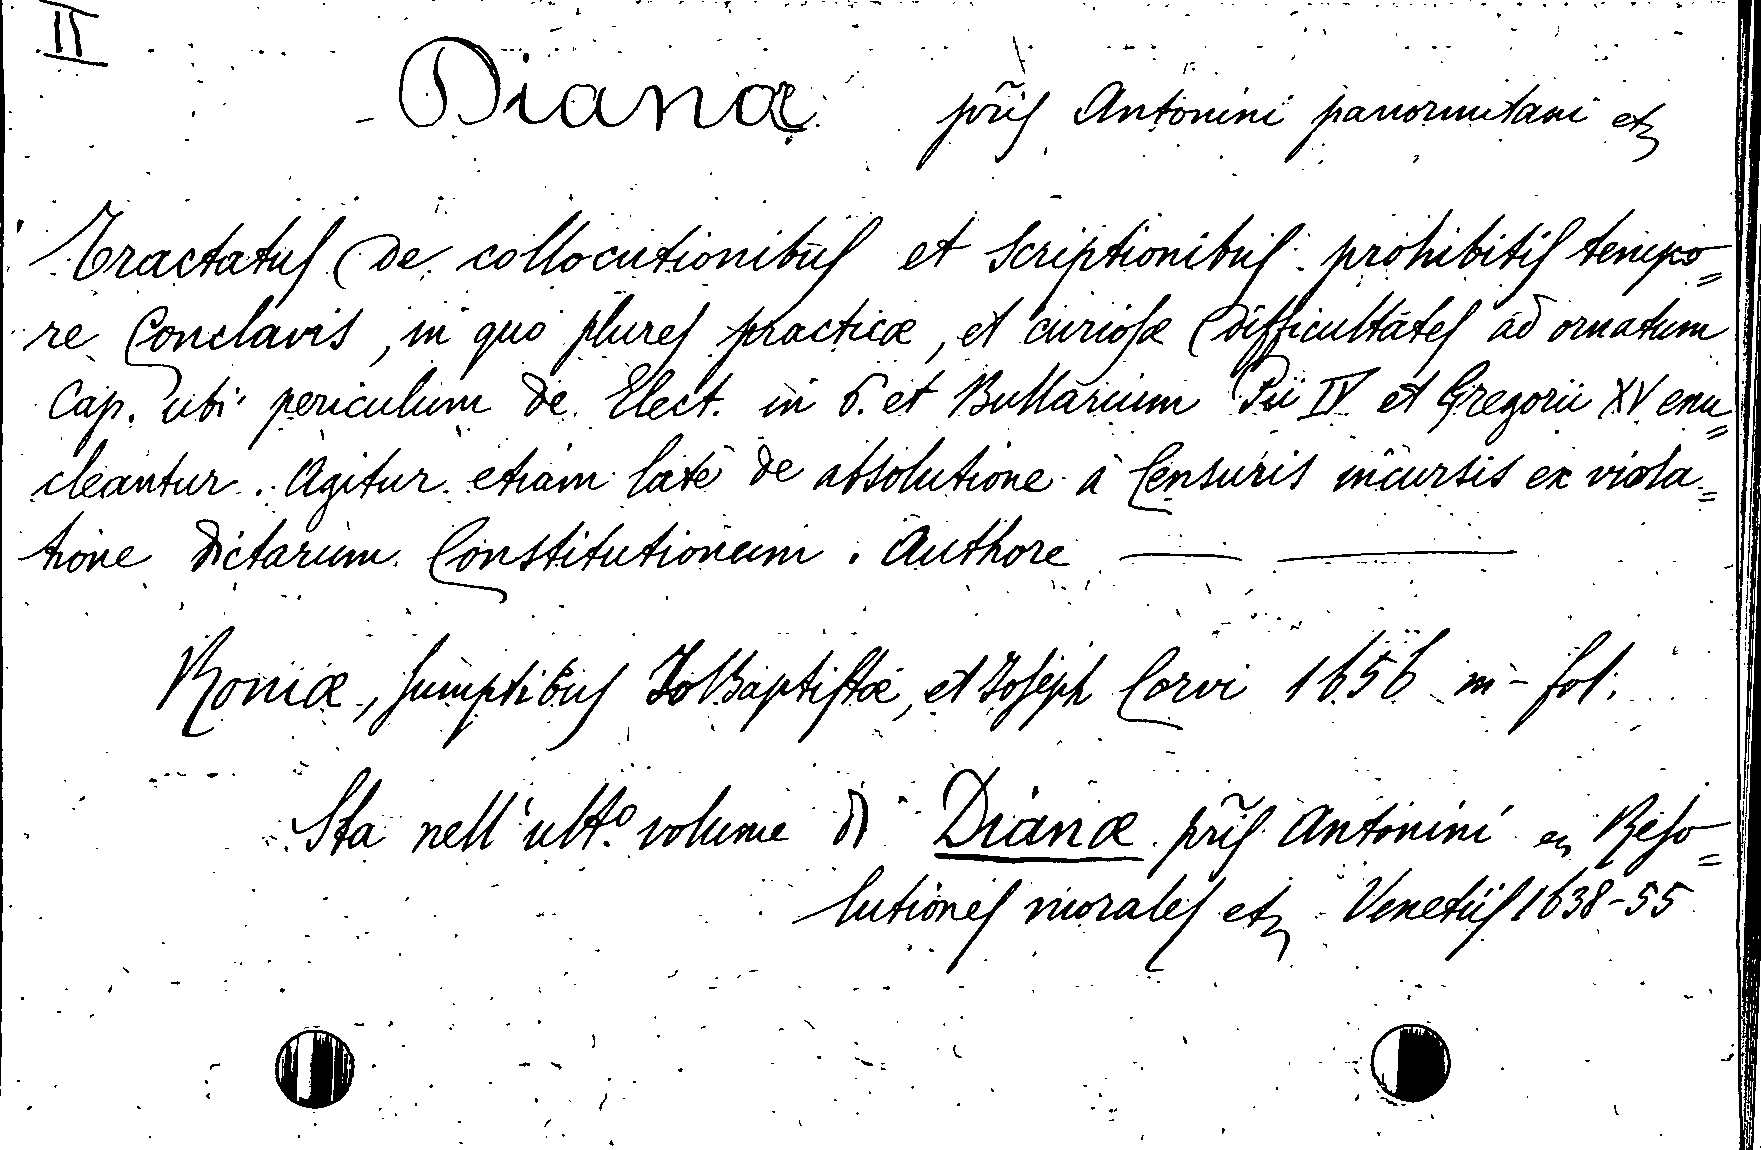 II
Dianæ pr̃is Antonini panormitani etz
Tractatus de collocutionibus et scriptionibus prohibitis tempo=
re Conclavis, in quo plures practicæ, et curiosæ difficultates ad ornatum
Cap. ubi periculum de Elect. in 6. et Bullarium Pii IV et Gregorii XV enu=
cleantur. Agitur etiam latè de absolutione à Censuris incursis ex viola=
tione dictarum Constitutionum. Authore — —
Romæ, sumptibus Jo Baptistæ, et Joseph Corvi 1656 in-fol.
Sta nell'ult.º volume di Dianæ pr̃is Antonini en Reso=
lutiones morales etz Venetiis 1638-55